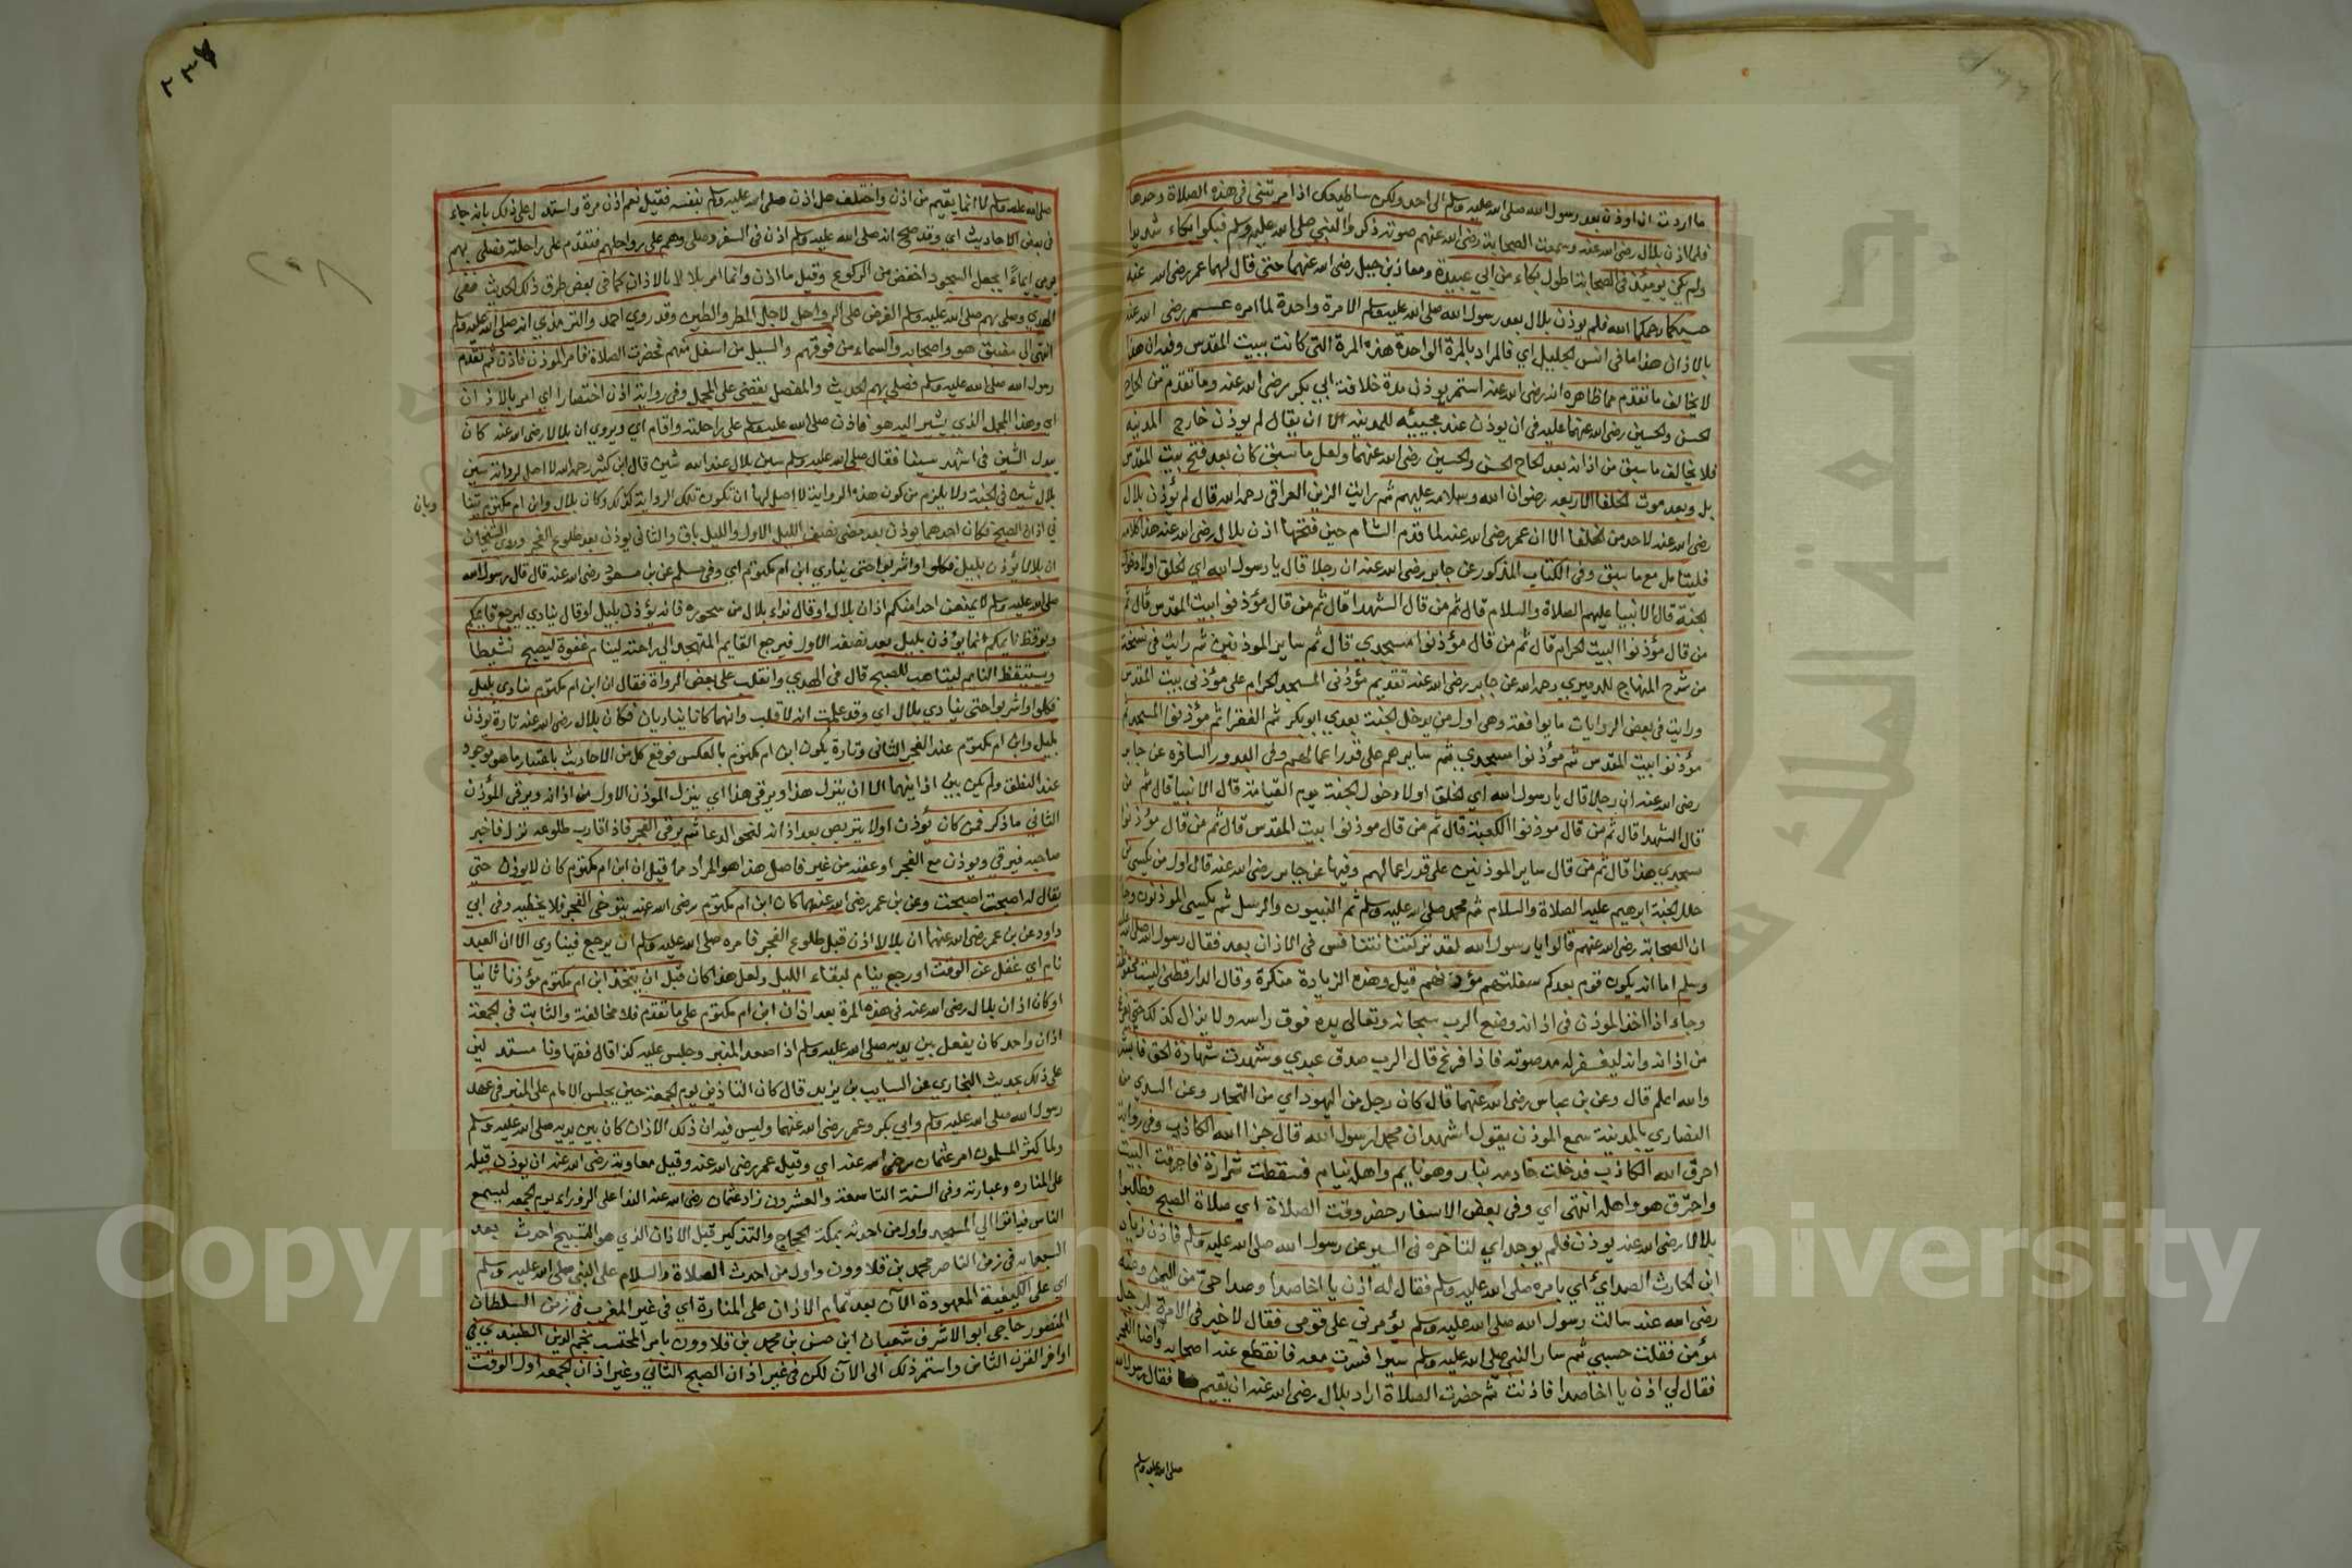 ما اردت ان اوذن بعد رسول الله صلى الله عليه وسلم الى احد ولكن ساطيعك اذا امرتني في هذه الصلاة وحدها
فلما اذن بلال رضى الله عنه وسمعت الصحابة رضى الله عنهم صوته ذكروا النبي صلى الله عليه وسلم فبكوا بكاء شديدا
ولم يكن يومئذ في الصحابة اطول بكاء من ابي عبيدة ومعاذ بن جبل رضى الله عنهما حتى قال لهما عمر رضى الله عنه
حسبكما رحمكما الله فلم يوذن بلال بعد رسول الله صلى الله عليه وسلم الا مرة واحدة لما امره عمر رضى الله عنه
بالاذان هذا ما في انس الجليل اي فالمراد بالمرة الواحدة هذه المرة التي كانت ببيت المقدس وفيه ان هذا
لا يخالف ما تقدم مما ظاهره انه رضى الله عنه استمر يوذن مدة خلافة ابي بكر رضى الله عنه وما تقدم من الحاح
الحسن والحسين رضى الله عنهما عليه في ان يوذن عند مجيئه للمدينة الا ان يقال لم يوذن خارج المدينة
فلا يخالف ما سبق من اذانه بعد الحاح الحسن والحسين رضى الله عنهما ولعل ما سبق كان بعد فتح بيت المقدس
بل وبعد موت الخلفا الاربعه رضوان الله وسلامه عليهم ثم رايت الزين العراقي رحمه الله قال لم يؤذن بلال
رضى الله عنه لاحد من الخلفا الا ان عمر رضى الله عنه لما قدم الشام حين فتحها اذن بلال رضى الله عنه هذا كلامه
فليتامل مع ما سبق وفي الكتاب المذكور عن جابر رضى الله عنه ان رجلا قال يا رسول الله اي الخلق اولا دخول
الجنة قال الانبيا عليهم الصلاة والسلام قال ثم من قال الشهدا قال ثم من قال مؤذنوا بيت المقدس قال ثم
من قال مؤذنوا البيت الحرام قال ثم من قال مؤذنوا مسجدي قال ثم ساير الموذنين ثم رايت في نسخة
من شرح المنهاج للدميري رحمه الله عن جابر رضى الله عنه تقديم مؤذني المسجد الحرام على مؤذني بيت المقدس
ورايت في بعض الروايات ما يوافقه وهى اول من يدخل الجنة بعدي ابو بكر ثم الفقرا ثم مؤذنوا المسجد
مؤذنوا بيت المقدس ثم مؤذنوا مسجدي ثم سايرهم على قدر اعمالهم وفي البدور السافره عن جابر
رضى الله عنه ان رجلا قال يا رسول الله اي الخلق اولا دخول الجنة يوم القيامة قال الانبيا قال ثم من
قال الشهدا قال ثم من قال موذنوا الكعبة قال ثم من قال موذنوا بيت المقدس قال ثم من قال مؤذنوا
مسجدي هذا قال ثم من قال ساير الموذنين على قدر اعمالهم وفيها عن جابر رضى الله عنه قال اول من يكسى من
حلل الجنة ابرهيم عليه الصلاة والسلام ثم محمد صلى الله عليه وسلم ثم النبيون والرسل ثم يكسى الموذنون وجا
ان الصحابة رضى الله عنهم قالوا يا رسول الله لقد تركتنا نتنافس في الاذان بعد فقال رسول الله صلى الله عليه
وسلم اما انه يكون قوم بعدكم سفلتهم مؤذنهم قيل وهذه الزيادة منكرة وقال الدارقطني ليست محفوظة
وجاء اذا اخذ الموذن في اذانه وضع الرب سبحانه وتعالى يده فوق راسه ولا يزال كذلك حتى يفرغ
من اذانه وانه ليغفر له مد صوته فاذا فرغ قال الرب صدق عبدي وشهدت شهادة الحق فابشر
والله اعلم قال وعن بن عباس رضى الله عنهما قال كان رجل من اليهود اي من التجار وعن السدي من
النصاري بالمدينة سمع الموذن يقول اشهد ان محمدا رسول الله قال جزا الله الكاذب وفي رواية
احرق الله الكاذب فدخلت خادمه بنار وهو نايم واهله نيام فسقطت شرارة فاحرقت البيت
واحترق هو واهله انتهى اي وفي بعض الاسفار حضر وقت الصلاة اي صلاة الصبح فطلبوا
بلالا رضى الله عنه يوذن فلم يوجد اي لتاخره في السير عن رسول الله صلى الله عليه وسلم فاذن زياد
ابن الحارث الصدايي اي بامره صلى الله عليه وسلم فقال له اذن يا اخا صدا وصدا حى من اليمن وعنه
رضى الله عنه سالت رسول الله صلى الله عليه وسلم يؤمرني على قومى فقال لا خير في الامرة لرجل
مؤمن فقلت حسبي ثم سار النبي صلى الله عليه وسلم سيرا فسرت معه فانقطع عنه اصحابه واضا الفجر
فقال لي اذن يا اخا صدا فاذنت ثم حضرت الصلاة اراد بلال رضى الله عنه ان يقيم فقال رسول الله
صلى الله عليه وسلم
٢٠٨
صلى الله عليه وسلم لا انما يقيم من اذن واختلف هل اذن صلى الله عليه وسلم بنفسه فقيل نعم اذن مرة واستدل على ذلك بانه جاء
في بعض الاحاديث اي وقد صح انه صلى الله عليه وسلم اذن في السفر وصلى وهم على رواحلهم فتقدم على راحلته فصلى بهم
يومي ايماءً يجعل السجود اخفض من الركوع وقيل ما اذن وانما امر بلالا بالاذان كما في بعض طرق ذلك الحديث ففي
الهدي وصلى بهم صلى الله عليه وسلم الفرض على الرواحل لاجل المطر والطين وقد روي احمد والترمذي انه صلى الله عليه وسلم
انتهى الى مضيق هو واصحابه والسماء من فوقهم والسيل من اسفل منهم فحضرت الصلاة فامر الموذن فاذن ثم تقدم
رسول الله صلى الله عليه وسلم فصلى بهم الحديث والمفصل يقضى على المجمل وفي رواية اذن اختصارا اي امر بالاذان
اي وهذا المجمل الذي يشير اليه هو فاذن صلى الله عليه وسلم على راحلته واقام اي ويروي ان بلالا رضى الله عنه كان
يبدل الشين في اشهد سينا فقال صلى الله عليه وسلم سين بلال عند الله شين قال ابن كثير رحمه الله لا اصل لرواية سين
بلال شين في الجنة ولا يلزم من كون هذه الرواية لا اصل لها ان تكون تلك الرواية كذلك وكان بلال وابن ام مكتوم يتنا
وبان
في اذان الصبح فكان احدهما يوذن بعد مضى نصف الليل الاول والليل باق والثاني يوذن بعد طلوع الفجر وروى الشيخان
ان بلالا يؤذن بليل فكلوا واشربوا حتى ينادي ابن ام مكتوم اي وفي مسلم عن بن مسعود رضى الله عنه قال قال رسول الله
صلى الله عليه وسلم لا يمنعن احدا منكم اذان بلال او قال نداء بلال من سحوره فانه يؤذن بليل او قال ينادي ليرجع قايمكم
ويوقظ نايمكم انما يؤذن بليل بعد نصفه الاول فيرجع القايم المتهجد الي راحته لينام غفوة ليصبح نشيطا
ويستيقظ النايم ليتاهب للصبح قال في الهدي وانقلب على بعض الرواة فقال ان ابن ام مكتوم ينادي بليل
فكلوا واشربوا حتى ينادي بلال اي وقد علمت انه لا قلب وانهما كانا يتناوبان فكان بلال رضى الله عنه تارة يوذن
بليل وابن ام مكتوم عند الفجر الثاني وتارة يكون ابن ام مكتوم بالعكس فوقع كل من الاحاديث باعتبار ما هو موجود
عند النطق ولم يكن بين اذانيهما الا ان ينزل هذا ويرقى هذا اي ينزل الموذن الاول من اذانه ويرقى المؤذن
الثاني ما ذكر فمن كان يؤذن اولا يتربص بعد اذانه لنحو الدعا ثم يرقى الفجر فاذا قارب طلوعه نزل فاخبر
صاحبه فيرقى ويوذن مع الفجر او عقبه من غير فاصل هذا هو المراد مما قيل ان ابن ام مكتوم كان لا يوذن حتى
يقال له اصبحت اصبحت وعن بن عمر رضى الله عنهما كان ابن ام مكتوم رضى الله عنه يتوخى الفجر فلا يخطيه وفي ابي
داود عن بن عمر رضى الله عنهما ان بلالا اذن قبل طلوع الفجر فامره صلى الله عليه وسلم ان يرجع فينادي الا ان العبد
نام اي غفل عن الوقت او رجع ينام لبقاء الليل ولعل هذا كان قبل ان يتخذ ابن ام مكتوم مؤذنا ثانيا
او كان اذان بلال رضى الله عنه في هذه المرة بعد اذان ابن ام مكتوم على ما تقدم فلا مخالفة والثابت في الجمعة
اذان واحد كان يفعل بين يديه صلى الله عليه وسلم اذا صعد المنبر وجلس عليه كذا قال فقهاونا مستدلين
على ذلك بحديث البخاري عن السايب بن يزيد قال كان التاذين يوم الجمعة حين يجلس الامام على المنبر في عهد
رسول الله صلى الله عليه وسلم وابي بكر وعمر رضى الله عنهما وليس فيه ان ذلك الاذان كان بين يديه صلى الله عليه وسلم
ولما كثر المسلمون امر عثمان رضى الله عنه اي وقيل عمر رضى الله عنه وقيل معاوية رضى الله عنه ان يوذن قبله
على المناره وعبارته وفي السنة التاسعة والعشرون زاد عثمان رضى الله عنه الندا على الزوراء يوم الجمعه ليسمع
الناس فياتوا الي المسجد واول من احدثه بمكة الحجاج والتذكير قبل الاذان الذي هو التسبيح احدث بعد
السبعماية في زمن الناصر محمد بن قلاوون واول من احدث الصلاة والسلام على النبي صلى الله عليه وسلم
اي على الكيفية المعهودة الآن بعد تمام الاذان على المنارة اي في غير المغرب في زمن السلطان
المنصور حاجي ابو الاشرف شعبان ابن حسن بن محمد بن قلاوون بامر المحتسب نجم الدين الطنبدي في
اواخر القرن الثامن واستمر ذلك الى الآن لكن في غير اذان الصبح الثاني وغير اذان الجمعه اول الوقت
Copyright © King Saud University
جامعة الملك سعود